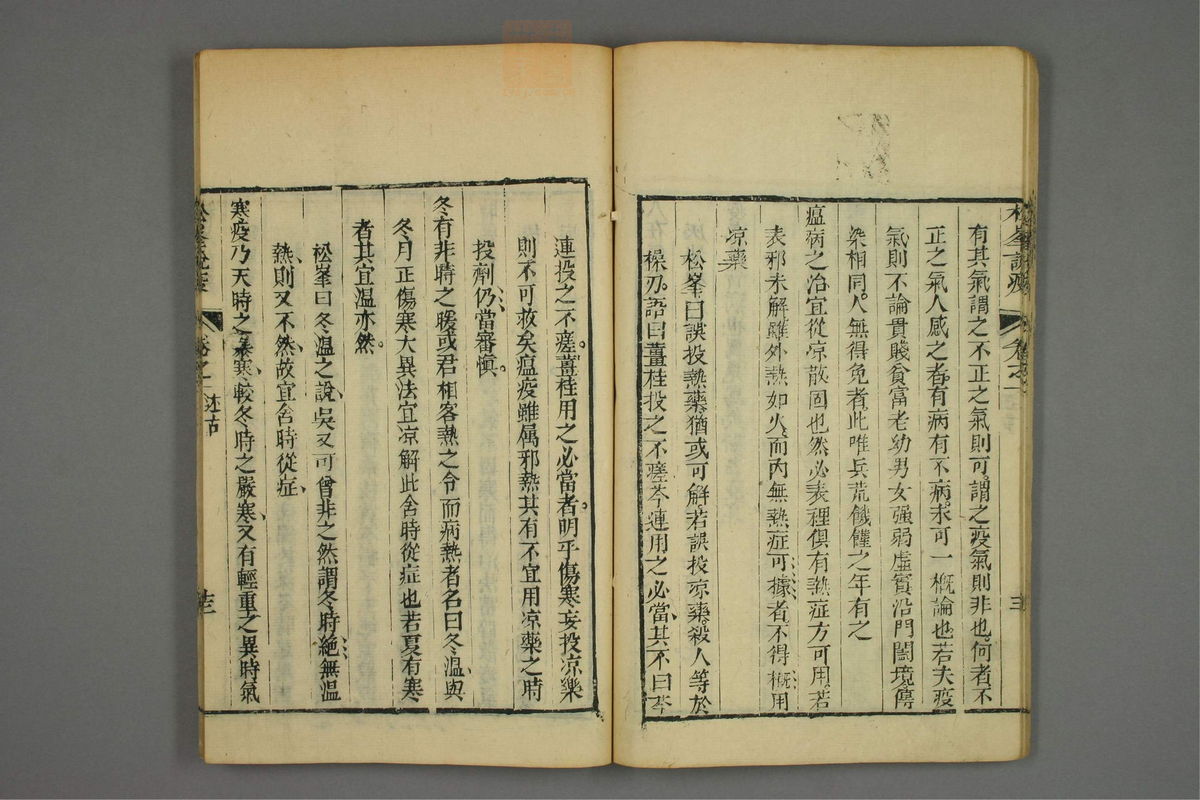 松峯說疫
卷之二
三
有其氣謂之不正之氣則可謂之疫氣則非也何者不
正之氣人感之者有病有不病未可一概論也若夫疫
氣則不論貴賤貧富老幼男女强弱虛實沿門闔境傳
染相同人無得免者此唯兵荒饑饉之年有之
瘟病之治宜從凉散固也然必表裡俱有熱症方可用若
表邪未解雖外熱如火而內無熱症可據者不得槪用
凉藥
松峯曰誤投熱藥猶或可解若誤投凉藥殺人等於
操刃語曰薑桂投之不瘥芩連用之必當其不曰芩
連投之不瘥薑桂用之必當者明乎傷寒妄投凉藥
則不可救矣瘟疫雖属邪熱其有不宜用凉藥之時
投劑仍當審愼
冬有非時之暖或君相客熱之令而病熱者名曰冬溫與
冬月正傷寒大異法宜凉解此舍時從症也若夏有寒
者其宜温亦然
松峯曰冬溫之說吳又可曾非之然謂冬時絕無温
熱則又不然故宜舍時從症
寒疫乃天時之暴寒較冬時之嚴寒又有輕重之異時氣
松峯說疫
卷之二
述古